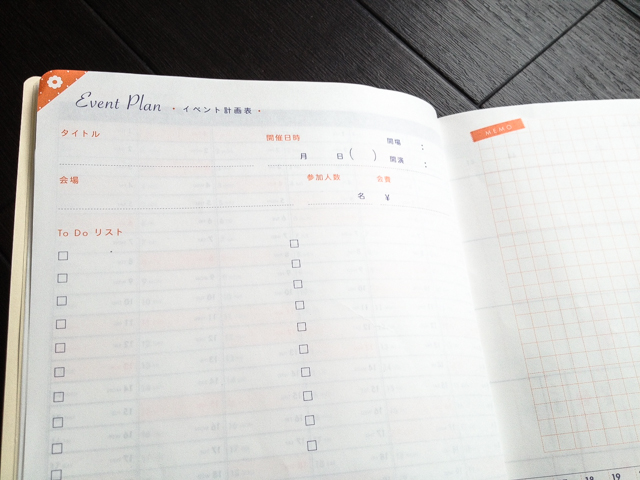 Event Plan ・イベント計画表・
タイトル 開催日時 開場 :
月 日( ) 開演 :
会場 参加人数 会費
名 ¥
To Do リスト
MEMO
18 19